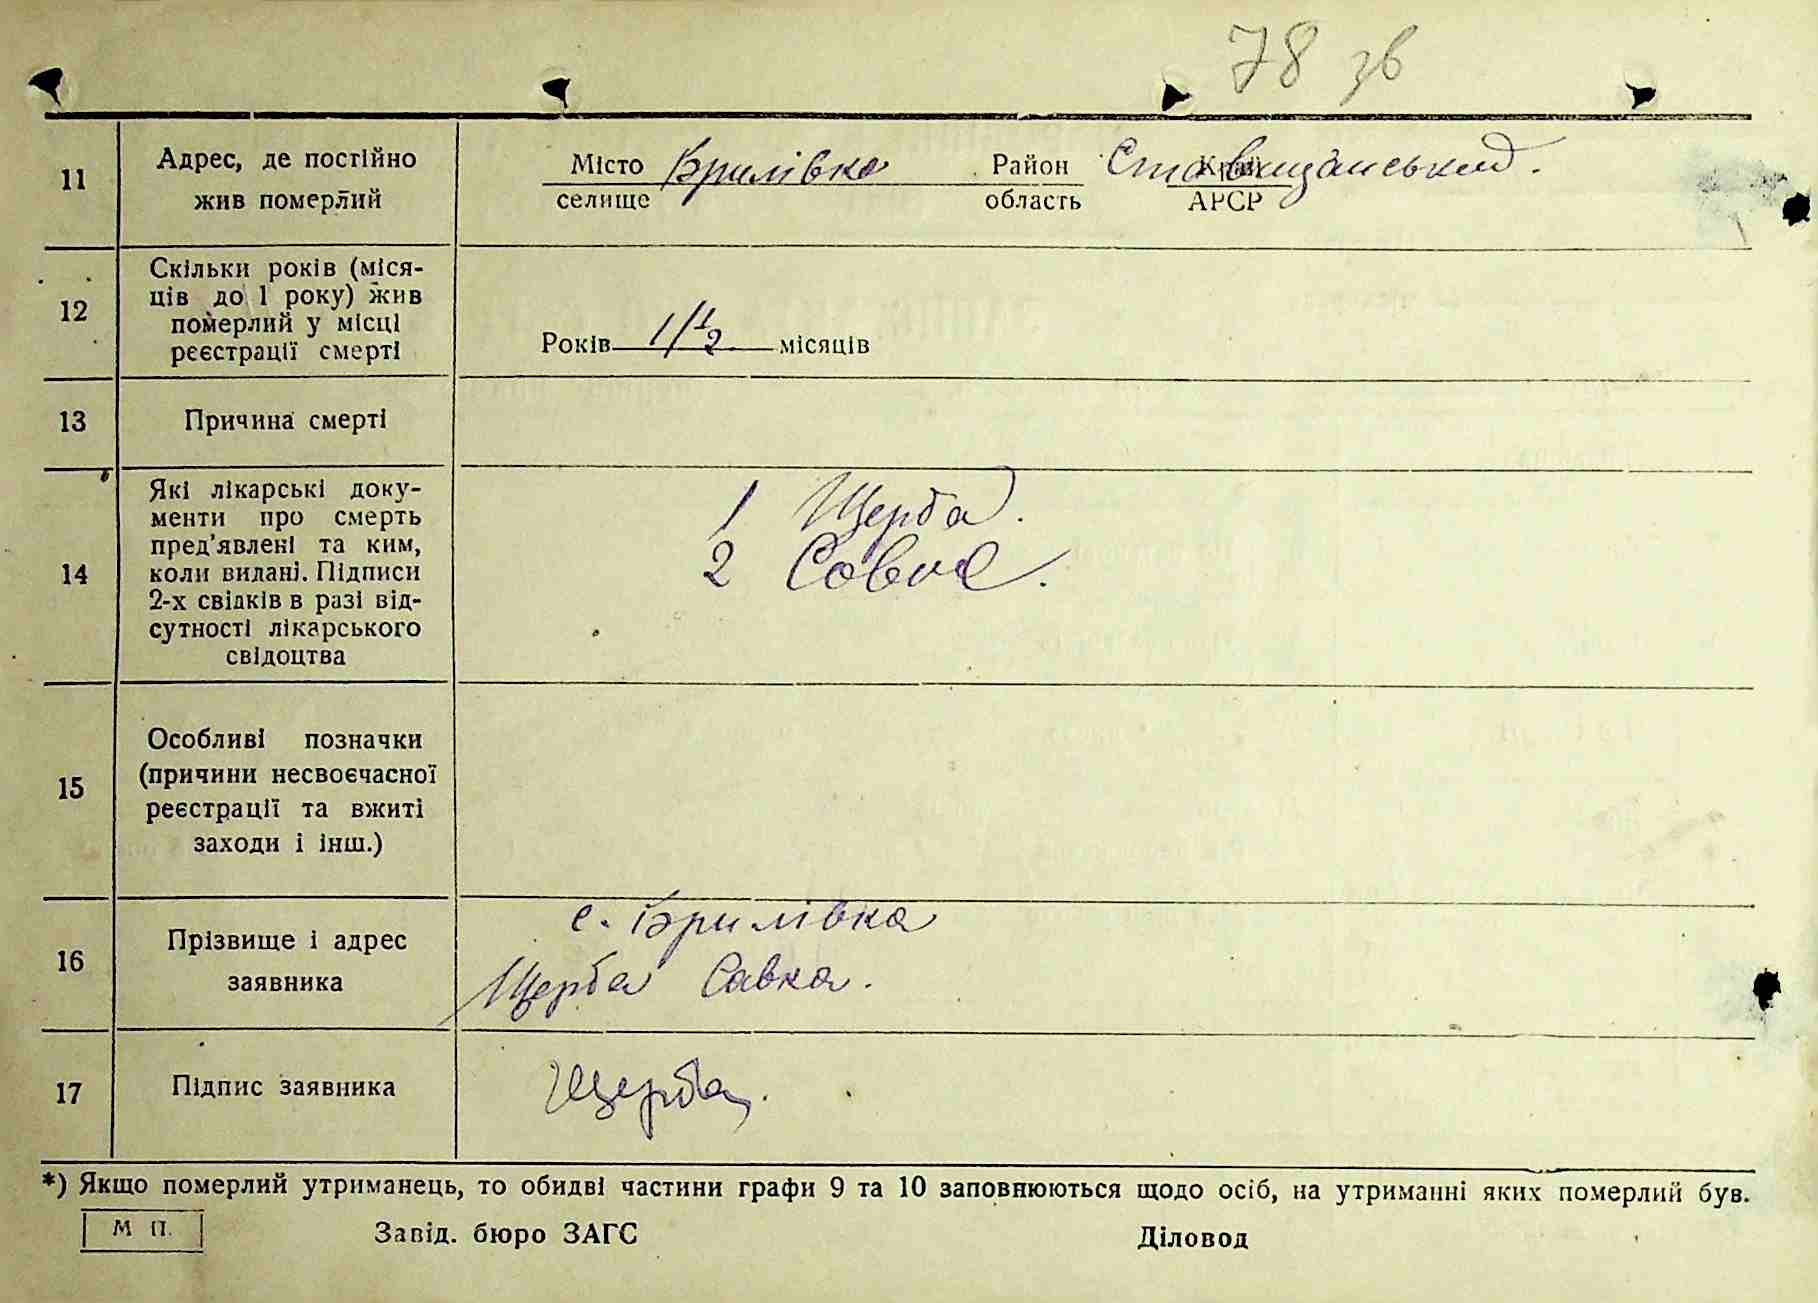 78 зв
11 Адрес, де постійно жив померлий
Місто Брилівка Район Ставищанський.
селище область АРСР
12 Скільки років (міся-
ців до 1 року) жив
померлий у місці
реєстрації смерті
Років 1 1/2 місяців
13 Причина смерті
14 Які лікарські доку-
менти про смерть
пред'явлені та ким,
коли видані. Підписи
2-х свідків в разі від-
сутності лікарського
свідоцтва
1 Щерба.
2 Совка.
15 Особливі позначки
(причини несвоєчасної
реєстрації та вжиті
заходи і інш.)
16 Прізвище і адрес
заявника
с. Брилівка
Щерба Савка.
17 Підпис заявника
Щерба.
*) Якщо померлий утриманець, то обидві частини графи 9 та 10 заповнюються щодо осіб, на утриманні яких померлий був.
М П. Завід. бюро ЗАГС Діловод